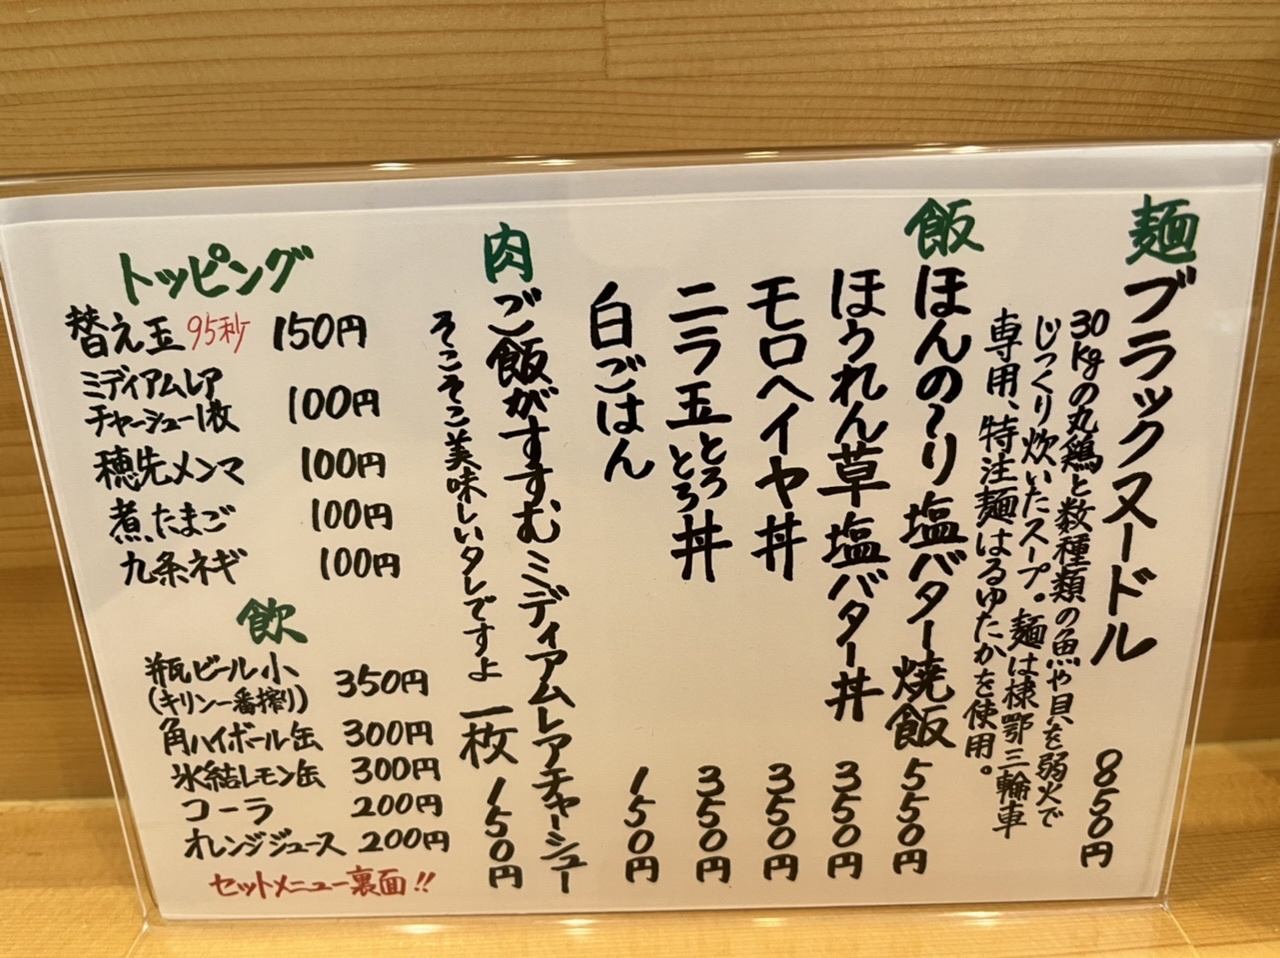 麺
ブラックヌードル 850円
30kgの丸鶏と数種類の魚や貝を弱火で
じっくり炊いたスープ。麺は棣鄂三輪車
専用、特注麺はるゆたかを使用。
飯
ほんの〜り塩バター焼飯 550円
ほうれん草塩バター丼 350円
モロヘイヤ丼 350円
ニラ玉とろとろ丼 350円
白ごはん 150円
肉
ご飯がすすむミディアムレアチャーシュー
一枚 150円
そこそこ美味しいタレですよ
トッピング
替え玉 95秒 150円
ミディアムレア
チャーシュー1枚 100円
穂先メンマ 100円
煮たまご 100円
九条ネギ 100円
飲
瓶ビール小 350円
(キリン一番搾り)
角ハイボール缶 300円
氷結レモン缶 300円
コーラ 200円
オレンジジュース 200円
セットメニュー裏面!!